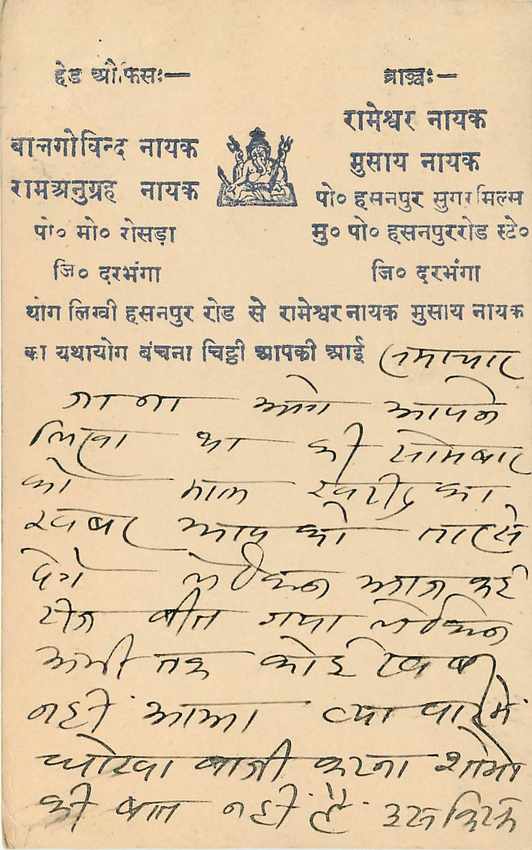 हेड ऑफिसः—
बालगोविन्द नायक
रामअनुग्रह नायक
पो० मो० रोसड़ा
जि० दरभंगा
ब्राञ्चः—
रामेश्वर नायक
मुसाय नायक
पो० हसनपुर सुगर मिल्स
मु० पो० हसनपुररोड स्टे०
जि० दरभंगा
योग लिखी हसनपुर रोड से रामेश्वर नायक मुसाय नायक
का यथायोग बंचना चिट्ठी आपकी आई समाचार
जाना आगे आपने
लिखा था की सोमबार
को माल खरीद का
खबर आप को तारसे
देगे लेकिन आज कई
रोज बीत गया लेकिन
अभी तक कोई खबर
नहीं आया व्यापारमें
धोखा बाजी करना शोभा
की बात नहीं है